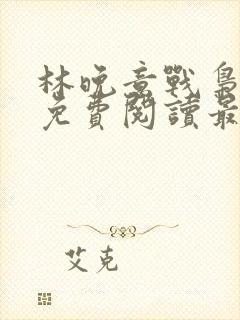 林晚意戰梟
免費閱讀最
艾克